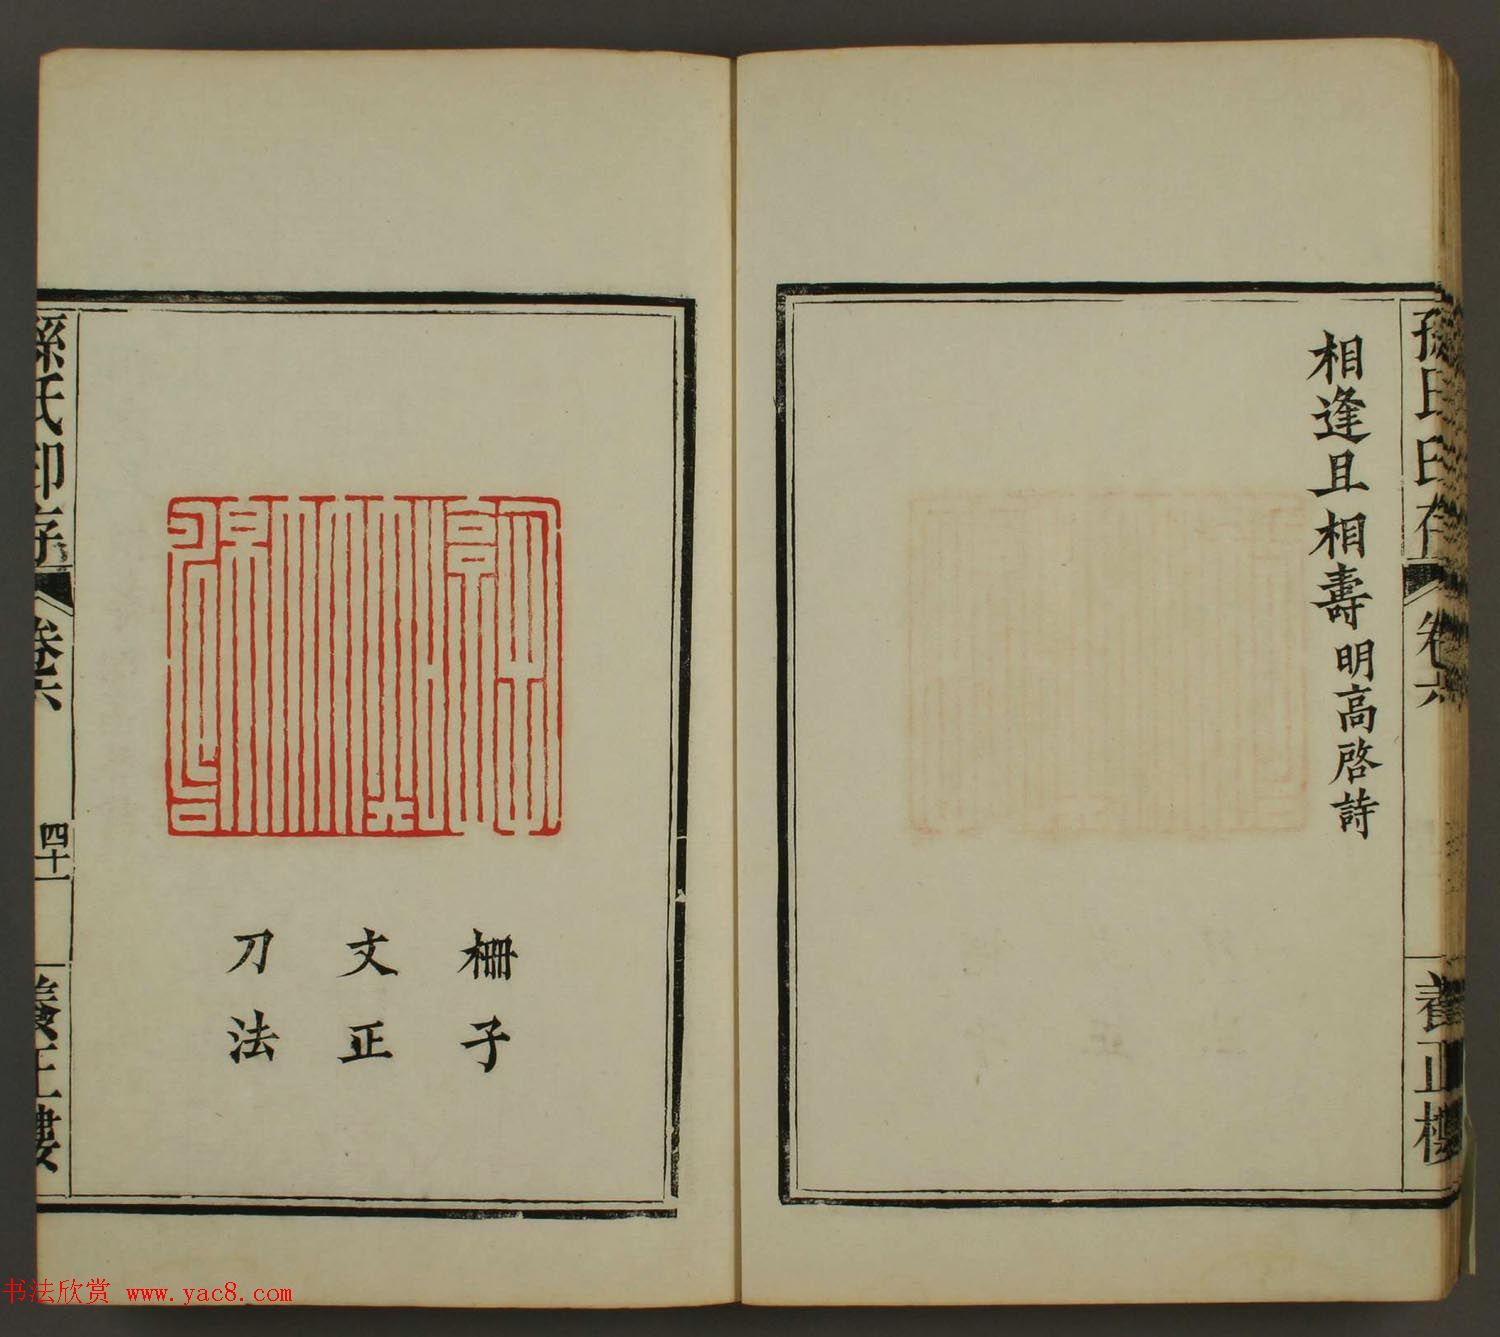 孫氏印存
卷六
養正樓
相逢且相壽明高啓詩
柵子
文正
刀法
孫氏印存
卷六
四十一
養正樓
书法欣赏 www.yac8.com